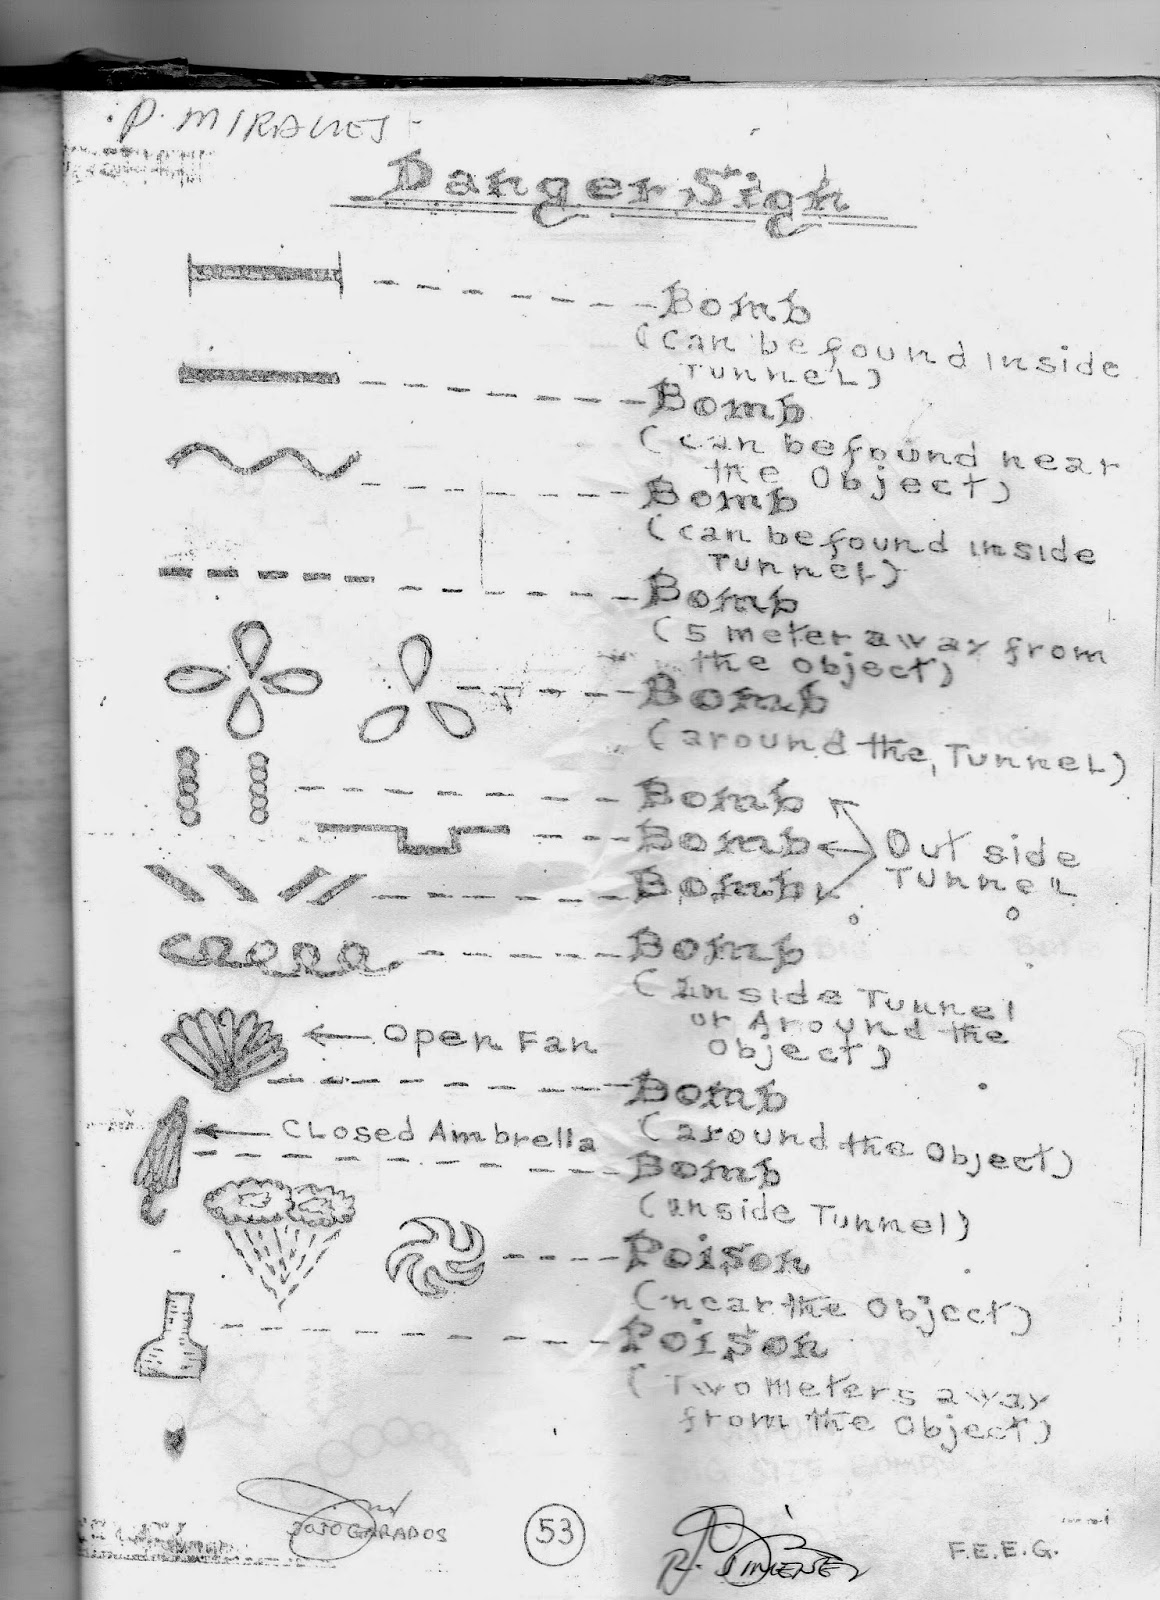 P. MIRALLES
Danger Sign
Bomb
(can be found inside
TunneL)
Bomb
(can be found near
the Object)
Bomb
(can be found inside
TunneL)
Bomb
(5 meter away from
the Object)
Bomb
(around the, TunneL)
Bomb
Bomb
Bomb
Out side
TunneL
Bomb
(inside Tunnel
or Around the
Object)
Open Fan
Bomb
(around the Object)
CLosed Ambrella
Bomb
(inside Tunnel)
Poison
(near the Object)
Poison
(Two meters away
from the Object)
JOJO GARADOS
53
R. JIMENEZ
F.E.E.G.